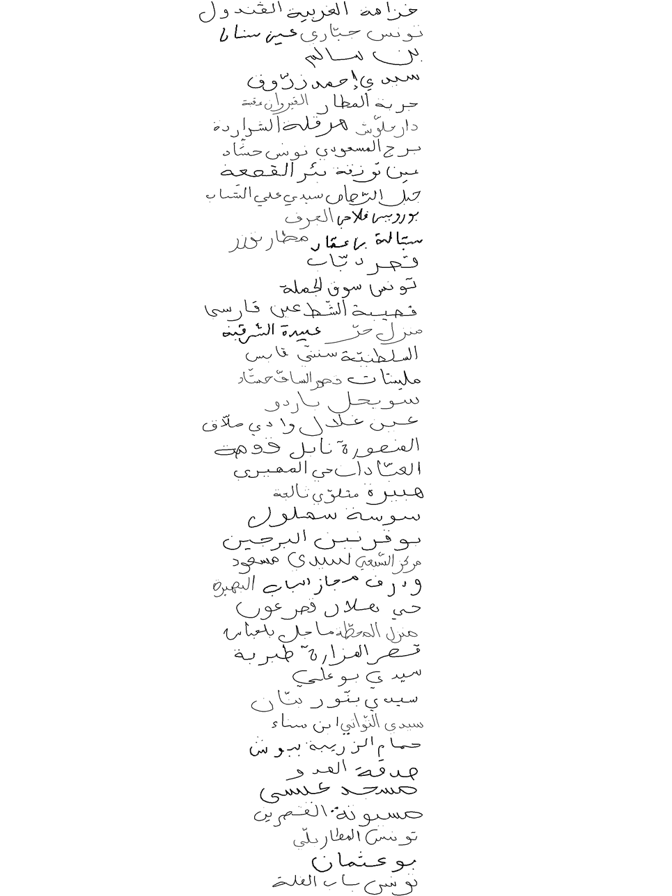 خزامة الغربية القندول
تونس حبّارى عين سنان
بن سالم
سيدي إحمد زرّوف
جربة المطار القيروان عقبة
دار علّوش هرقلة الشراردة
برج المسعودي تونس حشّاد
عين توزنة بئر القصعة
جبل الرّصاص سيدي علي الشباب
بورويس فلاحي العرف
ستالة براعقار مطار توزر
قصر دبّاب
تونس سوق الجملة
قصيبة الشّط عين قارسي
منزل حرّ عبيدة الشرقية
السلطنيّة سنّني قابس
مليتات قصر الساف حشّاد
سويحل باردو
عين غلال وادي ملاّق
المنصورة نابل قومة
العبّادات حي المهيري
هبيرة متلوّي ثالجة
سوسة سهلول
بوفرنين البرجين
مركز الشعبي لسيدي مسعود
وذرف مجاز الباب البحيرة
حي هلال قصر عون
منزل المحطّة ماجل بلعباس
قصر المزارة طبربة
سيدي بو علي
سيدي بنّور بنّان
سيدي التّواتي ابن سناء
حمام الزريبة ببوش
صدقة العدو
مسجد عيسى
مسيونة القصرين
تونس المطار بلّي
بو عثمان
تونس باب العلة